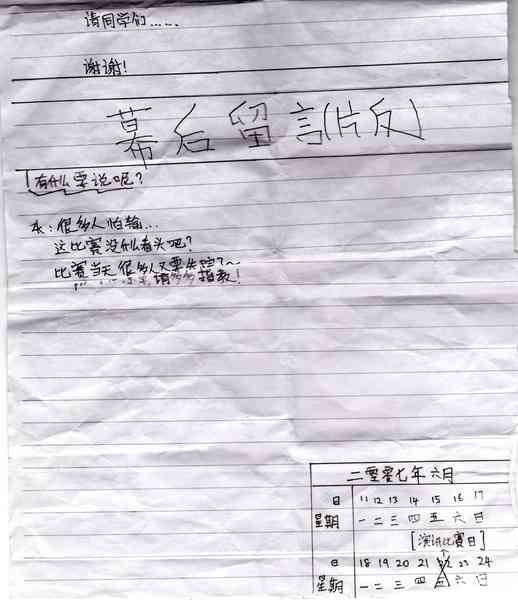 请同学们......
谢谢!
幕后留言(片反)
有什么要说呢?
本:很多人怕输...
这比赛没什么看头吧?
比赛当天很多人又要生病了~
请多多指教!
二零零七年六月
日 11 12 13 14 15 16 17
星期 一 二 三 四 五 六 日
[演讲比赛日]
日 18 19 20 21 22 23 24
星期 一 二 三 四 五 六 日